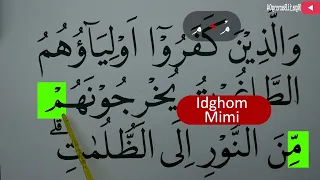 وَالَّذِيْنَ كَفَرُوْٓا اَوْلِيَاۤؤُهُمُ
يُخْرِجُوْنَهُمْ
Idghom
Mimi
مِّنَ النُّوْرِ اِلَى الظُّلُمٰتِۗ